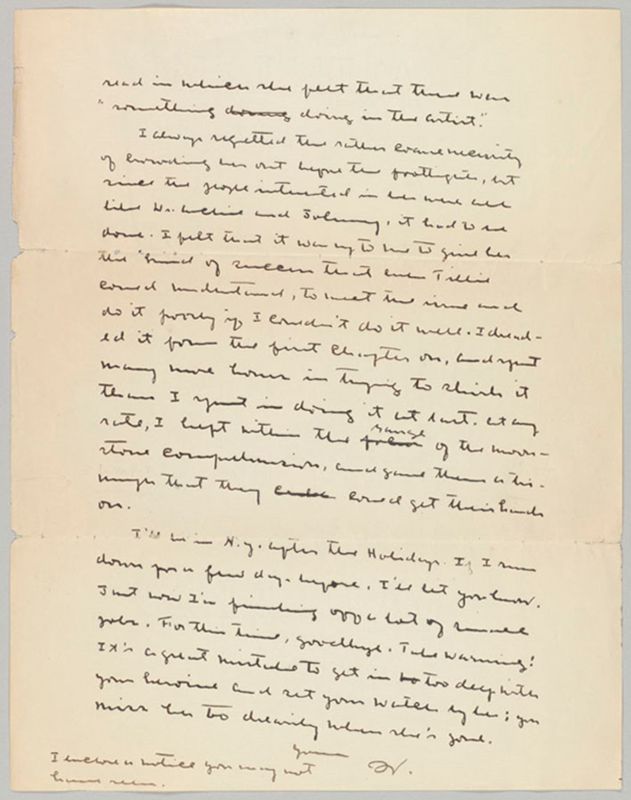 read in which she felt that there was
"something doing doing in the artist."
I always regretted the rather coarse necessity
of crowding her out before the footlights, but
since the people interested in her were all
like Dr. Archie and Johnny, it had to be
done. I felt that it was up to me to give her
the kind of success that even Tillie
could understand, to meet the issue and
do it poorly if I couldn't do it well. I dread-
ed it from the first chapter on, and spent
many more hours in trying to shirk it
than I spent in doing it at last. At any
range
rate, I kept within the of the moon-
stone comprehension, and gave them
that they could get their hands
on.
I'll be in N.Y. after the Holidays. If I run
down for a few days before, I'll let you know.
Just now I'm finishing off a lot of small
jobs. For this time, goodbye. Take warning!
It's a great mistake to get in too deep with
your heroine and set your watch by her; you
miss her too drearily when she's gone.
Yours
W.
I enclose a notice you may not
have seen.